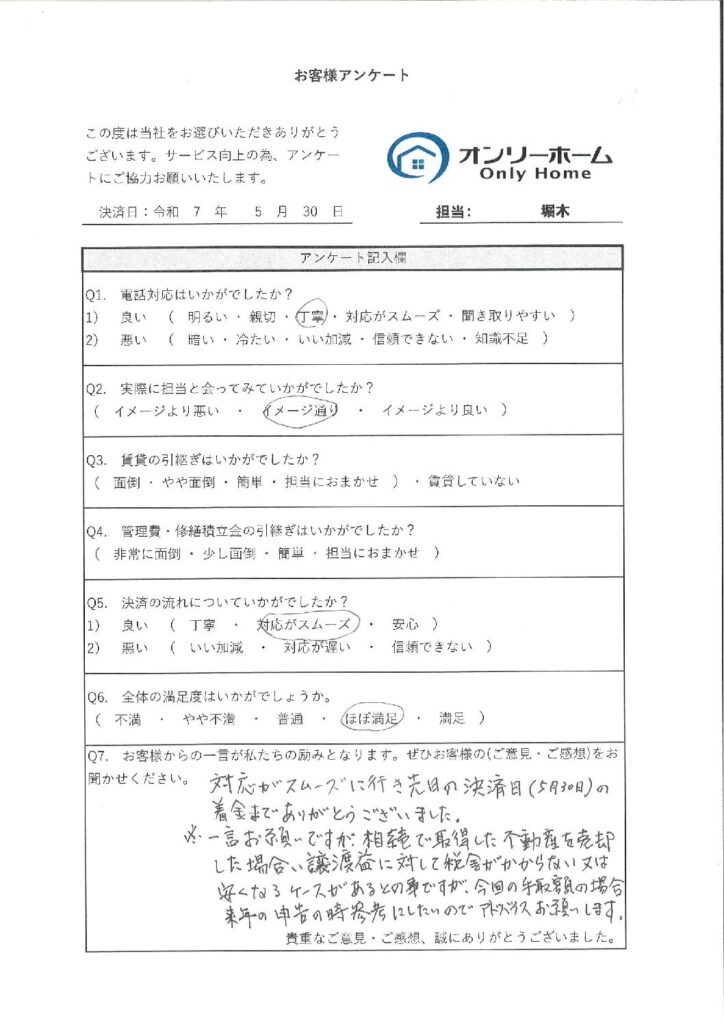 お客様アンケート
この度は当社をお選びいただきありがとう
ございます。サービス向上の為、アンケー
トにご協力お願いいたします。
オンリーホーム
Only Home
決済日：令和 7 年 5 月 30 日
担当： 堀木
アンケート記入欄
Q1. 電話対応はいかがでしたか？
1) 良い （ 明るい ・ 親切 ・ 丁寧 ・ 対応がスムーズ ・ 聞き取りやすい ）
2) 悪い （ 暗い ・ 冷たい ・ いい加減 ・ 信頼できない ・ 知識不足 ）
Q2. 実際に担当と会ってみていかがでしたか？
（ イメージより悪い ・ イメージ通り ・ イメージより良い ）
Q3. 賃貸の引継ぎはいかがでしたか？
（ 面倒 ・ やや面倒 ・ 簡単 ・ 担当におまかせ ） ・ 賃貸していない
Q4. 管理費・修繕積立会の引継ぎはいかがでしたか？
（ 非常に面倒 ・ 少し面倒 ・ 簡単 ・ 担当におまかせ ）
Q5. 決済の流れについていかがでしたか？
1) 良い （ 丁寧 ・ 対応がスムーズ ・ 安心 ）
2) 悪い （ いい加減 ・ 対応が遅い ・ 信頼できない ）
Q6. 全体の満足度はいかがでしょうか。
（ 不満 ・ やや不満 ・ 普通 ・ ほぼ満足 ・ 満足 ）
Q7. お客様からの一言が私たちの励みとなります。ぜひお客様の(ご意見・ご感想)をお
聞かせください。
対応がスムーズに行き先日の決済日(5月30日)の
着金までありがとうございました。
※一言お願いですが、相続で取得した不動産を売却
した場合い譲渡益に対して税金がかからない又は
安くなるケースがあるとの事ですが、今回の手取額の場合
来年の申告の時参考にしたいのでアドバイスお願いします。
貴重なご意見・ご感想、誠にありがとうございました。